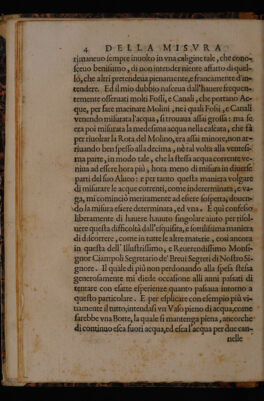 4 DELLA MISVRA
rimaneuo sempre inuolto in vna caligine tale, che cono-
sceuo benissimo, di non intender niente affatto di quel-
lo, che altri pretendeua pienamente, e francamente d'in-
tendere. Ed il mio dubbio nasceua dall'hauere frequen-
temente osseruati molti Fossi, e Canali, che portano Ac-
que, per fare macinare Molini, ne i quali Fossi, e Canali
venendo misurata l'acqua, si trouaua assai grossa: ma se
era poi misurata la medesima acqua nella cascata, che fà
per riuoltar la Rota del Molino, era assai minore, non ar-
riuando ben spesso alla decima, nè tal volta alla ventesi-
ma parte, in modo tale, che la stessa acqua corrente ve-
niua ad essere hora più, hora meno di misura in diuerse
parti del suo Alueo: e per tanto questa maniera volgare
di misurare le acque correnti, come indeterminata, e va-
ga, mi cominciò meritamente ad essere sospetta, douen-
do la misura essere determinata, ed vna. E quì confesso
liberamente di hauere hauuto singolare aiuto per risol-
uere questa difficoltà dall'esquisita, e sottilissima maniera
di discorrere, come in tutte le altre materie, così ancora
in questa dell' Illustrissimo, e Reuerendissimo Monsi-
gnor Ciampoli Segretario de' Breui Segreti di Nostro Si-
gnore. Il quale di più non perdonando alla spesa stessa
generosamente mi diede occasione alli anni passati di
tentare con esatte esperienze quanto passaua intorno a
questo particolare. E per esplicare con esempio più vi-
uamente il tutto, intendasi vn Vaso pieno di acqua, come
sarebbe vna Botte, la quale si mantenga piena, ancorche
di continuo esca fuori acqua, ed esca l'acqua per due can-
nelle